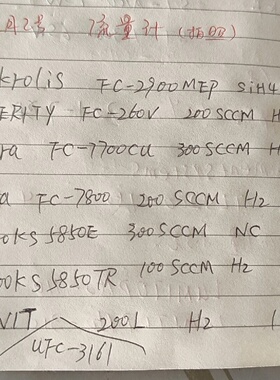 月2号 流量计(拍照)
krolis FC-2900MEP SiH4
ERITY FC-260V 200 SCCM H
ra FC-7700CU 300 SCCM H
a FC-7800 200 SCCM H2
oks 5850E 300 SCCM NC
ooks 5850TR 100 SCCM H2
NIT 200L H2 1
UFC-3161